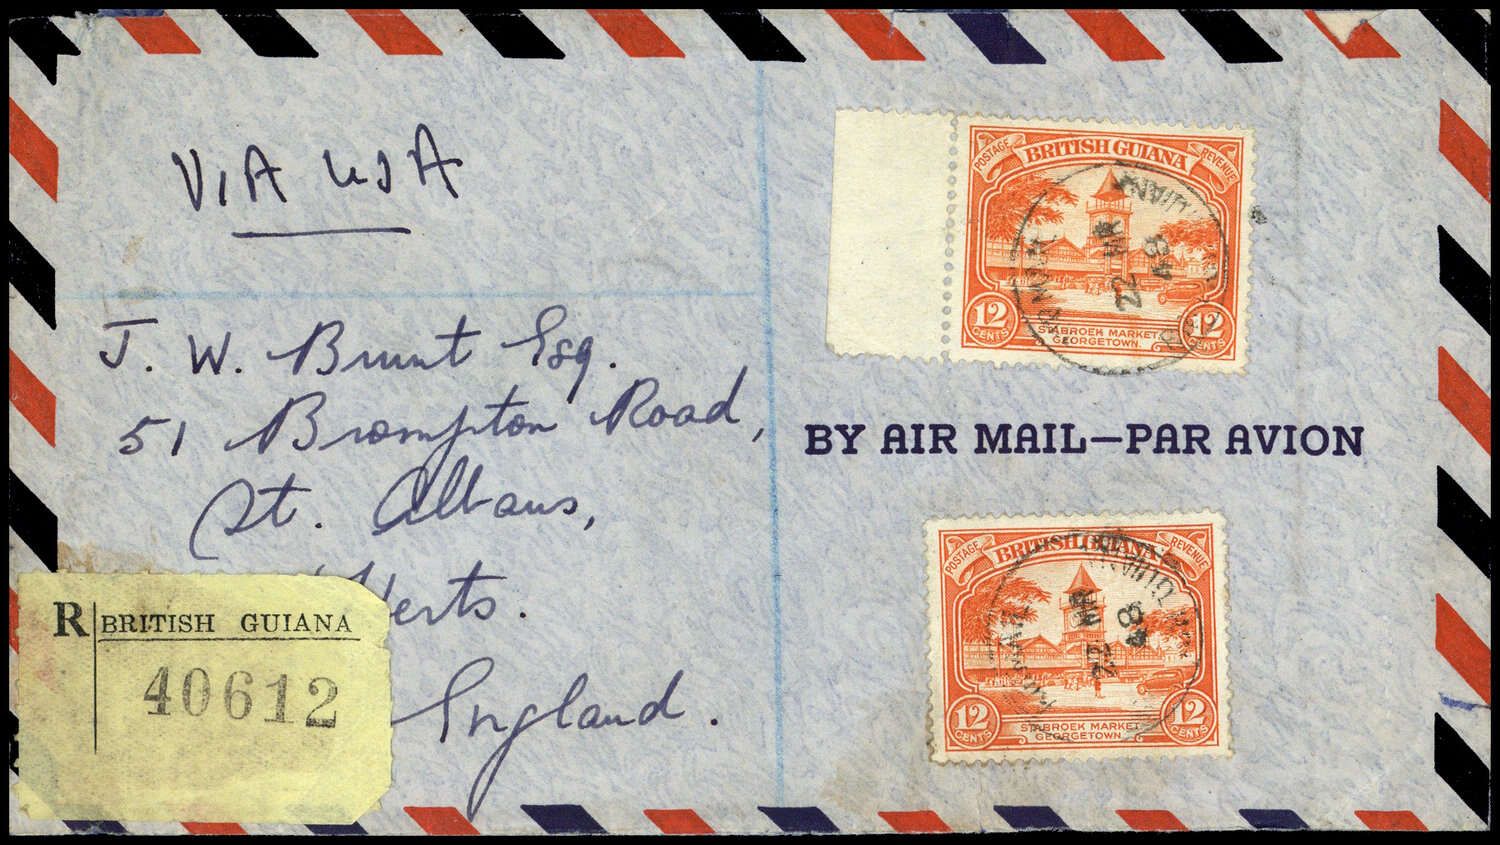 VIA USA
J. W. Brunt Esq.
51 Brompton Road,
St. Albans,
Herts.
England.
R BRITISH GUIANA
40612
POSTAGE BRITISH GUIANA REVENUE
22 MR
48
12 CENTS STABROEK MARKET GEORGETOWN. 12 CENTS
BY AIR MAIL—PAR AVION
POSTAGE BRITISH GUIANA REVENUE
22 MR
48
12 CENTS STABROEK MARKET GEORGETOWN. 12 CENTS